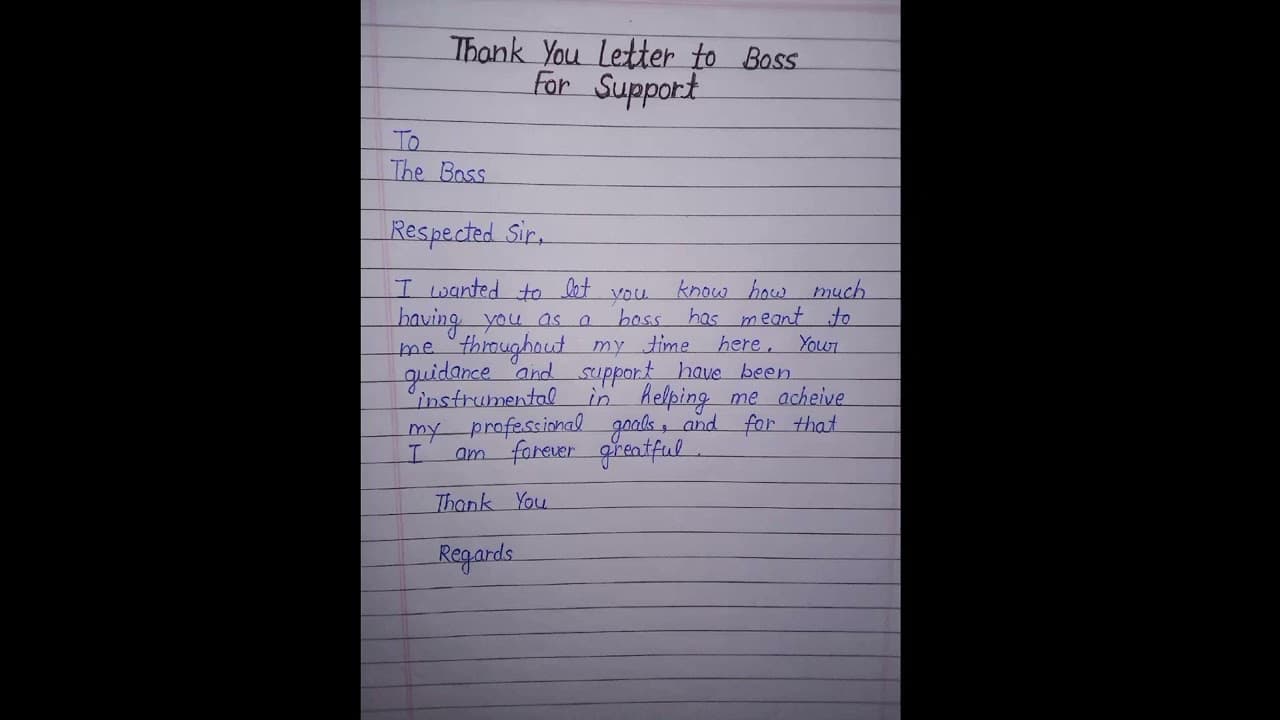 Thank You Letter to Boss
For Support
To
The Boss
Respected Sir,
I wanted to let you know how much
having you as a boss has meant to
me throughout my time here. Your
guidance and support have been
instrumental in helping me acheive
my professional goals, and for that
I am forever greatful.
Thank You
Regards